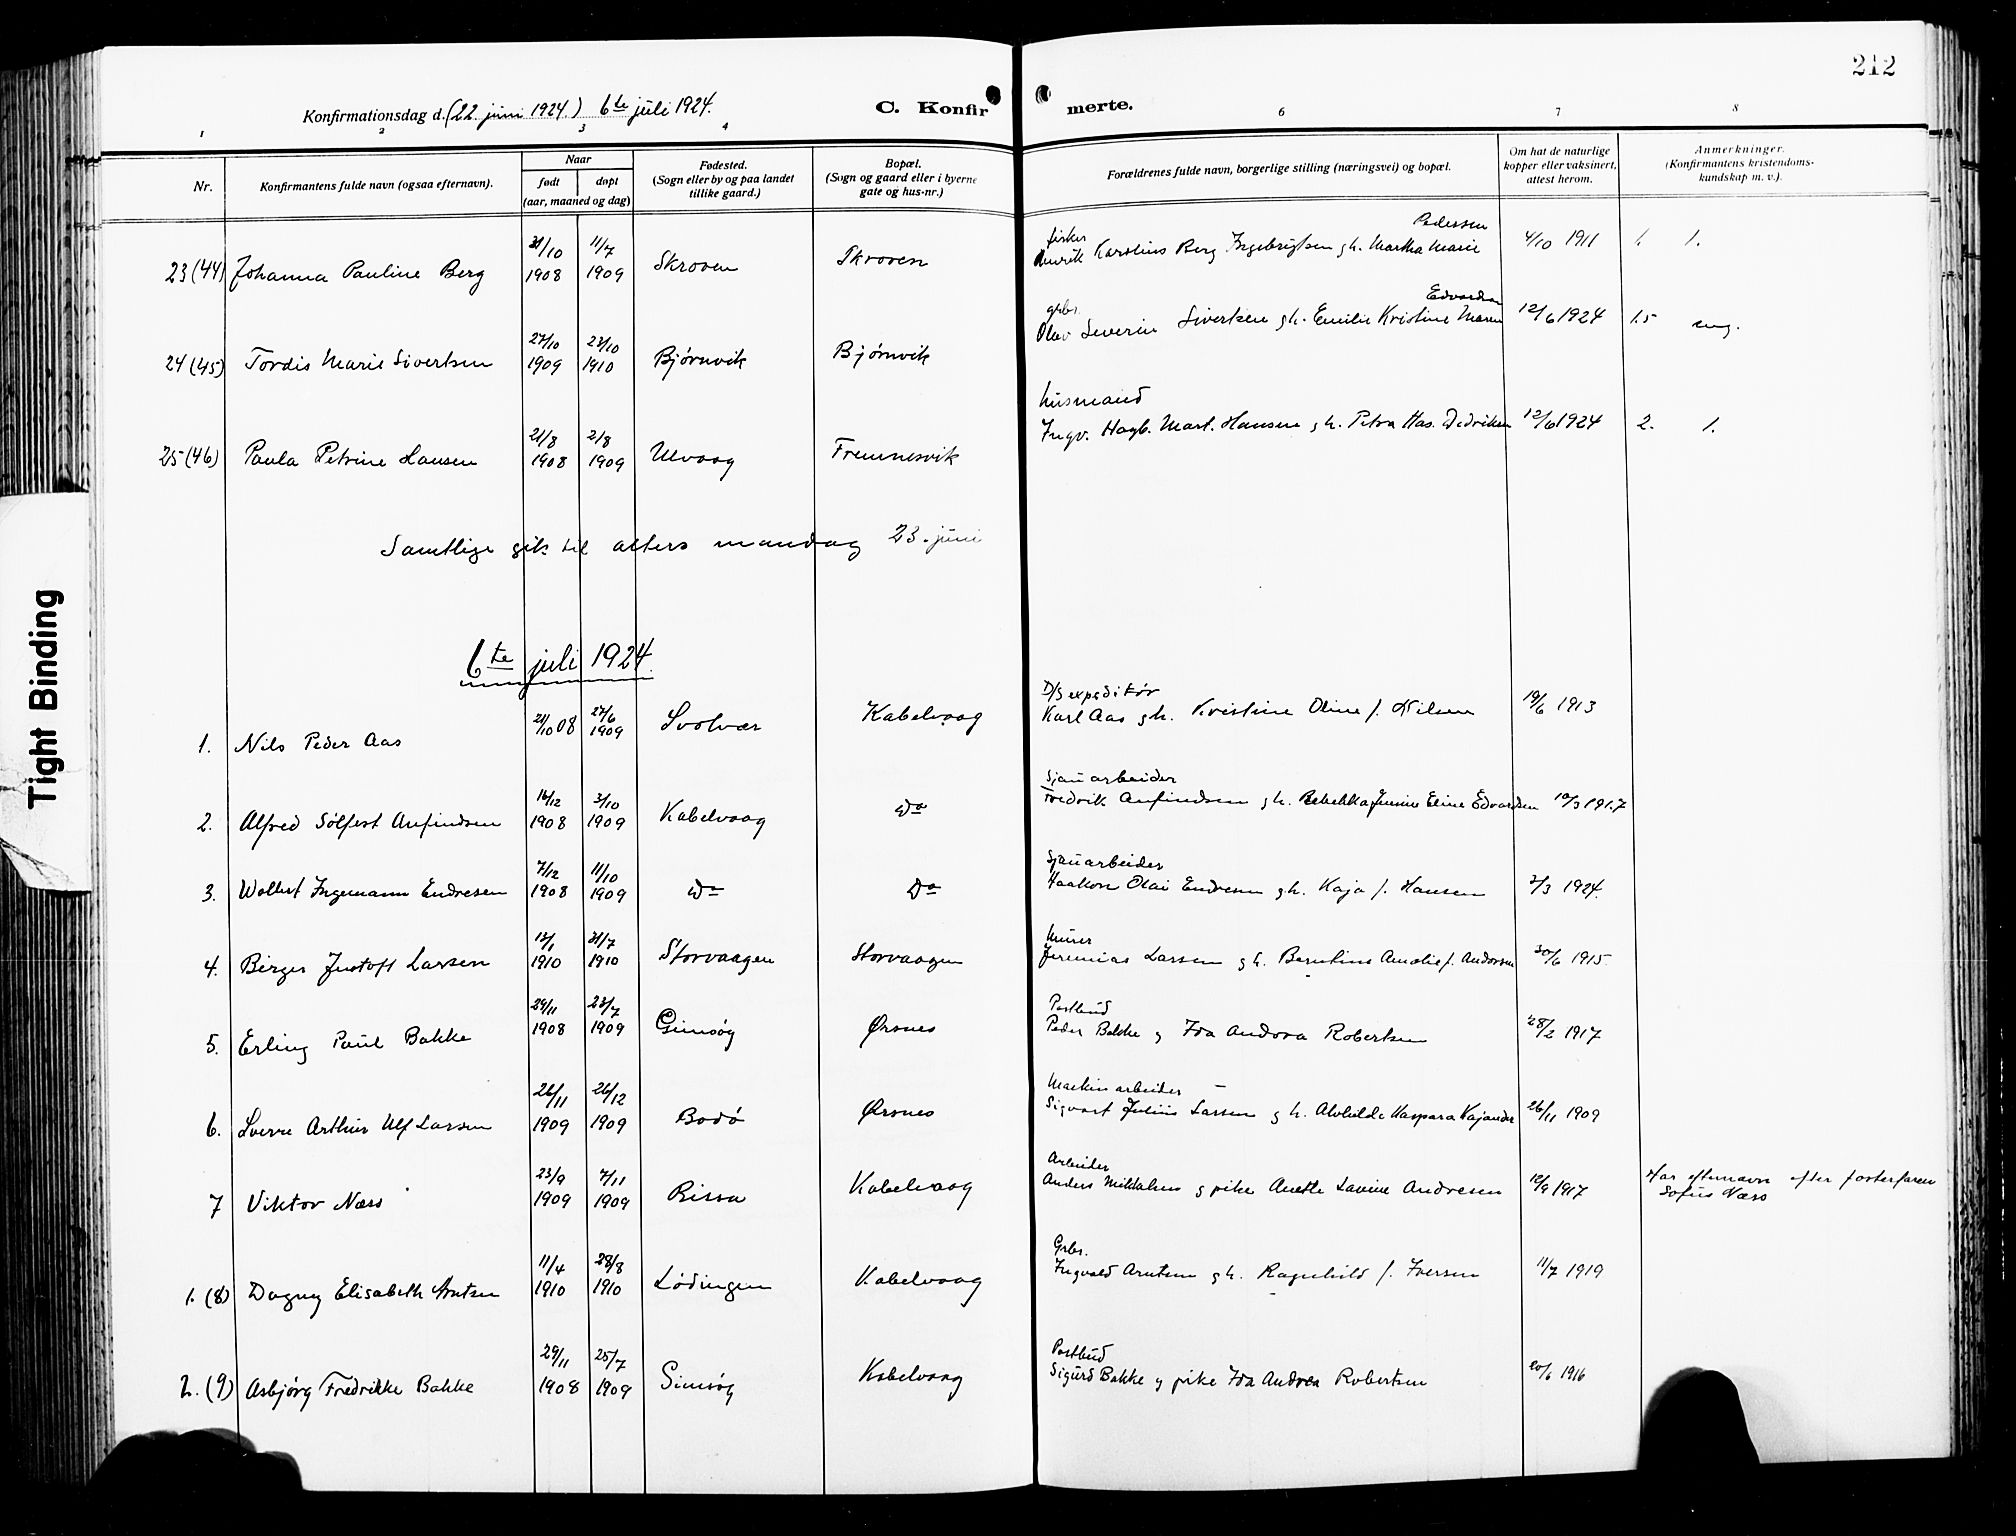 212
Konfirmationsdag d. (22. juni 1924.) 6te juli 1924.
C. Konfirmerte.
1 2 3 4 6 7 8
Nr.
Konfirmantens fulde navn (ogsaa efternavn).
Naar
født døpt
(aar, maaned og dag)
Fødested.
(Sogn eller by og paa landet
tillike gaard.)
Bopæl.
(Sogn og gaard eller i byerne
gate og hus-nr.)
Forældrenes fulde navn, borgerlige stilling (næringsvei) og bopæl.
Om hat de naturlige
kopper eller vaksinert,
attest herom.
Anmerkninger.
(Konfirmantens kristendoms-
kundskap m. v.)
fisker Pedersen
23 (44) Johanna Pauline Berg 31/10 1908 11/7 1909 Skroven Skroven Henrik Karstins Berg Ingebrigtsen g h. Martha Marie 4/10 1911 1. 1.
grbr. Edvardsen
24 (45) Tordis Marie Sivertsen 27/10 1909 23/10 1910 Bjørnvik Bjørnvik Olav Severin Sivertsen g h. Emilie Kristine Maren 12/6 1924 1.5 ung.
husmand
25 (46) Paula Petrine Hansen 21/8 1908 2/8 1909 Ulvaag Fremnesvik Ingv. Hagb. Mart. Hansen g h. Petra Has. Didriksen 12/6 1924 2. 1.
Samtlige gik til alters mandag 23. juni
6te juli 1924.
D/S expeditør
1. Nils Peder Aas 21/10 08 27/6 1909 Svolvær Kabelvaag Karl Aas g h. Kristine Oline f. Nilsen 19/6 1913
Sjauarbeider
2. Alfred Sølfest Anfindsen 16/12 1908 3/10 1909 Kabelvaag Do Fredrik Anfindsen g h. Rebekka Jennine Eline Edvardsen 10/3 1917
Sjauarbeider
3. Wollert Ingemann Endresen 7/12 1908 11/10 1909 Do Do Haakon Olai Endresen g h. Kaja f. Hansen 2/3 1924.
Murer
4. Birger Justoft Larsen 13/1 1910 31/7 1910 Storvaagen Storvaagen Jeremias Larsen g h. Berntine Amalie f. Andorsen 30/6 1915
Postbud
5. Erling Paul Bakke 29/11 1908 23/7 1909 Gimsøy Ørsnes Peder Bakke g Ida Andora Robertsen 28/2 1917
Maskinarbeider
6. Sverre Arthur Ulf Larsen 26/11 1909 26/12 1909 Bodø Ørsnes Sigvart Julius Larsen g h. Alvhilde Kaspara Kajander 26/11 1909
Arbeider
7 Viktor Næss 23/9 1909 7/11 1909 Rissa Kabelvaag Anders Mikkalsen g pike Anette Lavine Andresen 12/9 1917 Har efternavn efter fosterfaren
Sofus Næss
Grbr.
1. (8) Dagny Elisabeth Arntsen 11/4 1910 28/8 1910 Lødingen Kabelvaag Ingvald Arntsen g h. Ragnhild f. Iversen 11/7 1919
Postbud
2. (9) Asbjørg Fredrikke Bakke 29/11 1908 25/7 1909 Gimsøy Kabelvaag Sigurd Bakke g pike Ida Andrea Robertsen 20/6 1916
Tight Binding